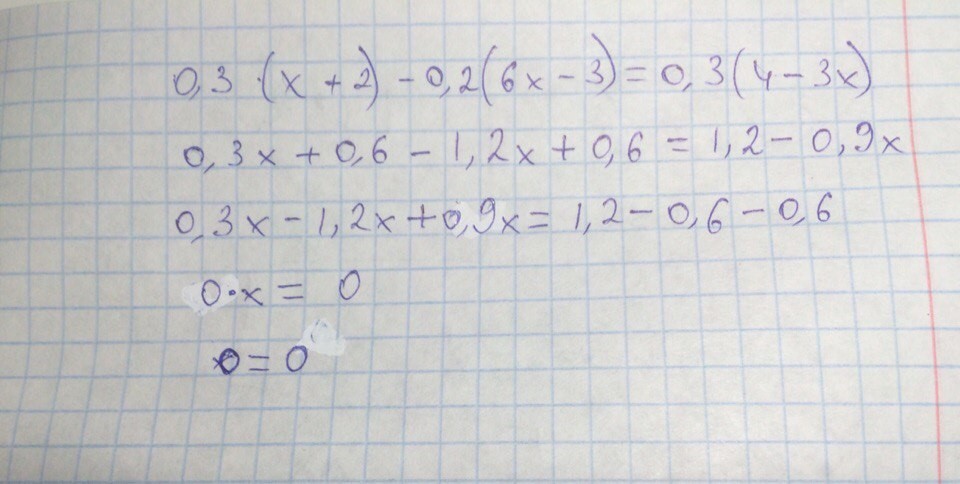 0,3·(x+2)-0,2(6x-3)=0,3(4-3x)
0,3x+0,6-1,2x+0,6=1,2-0,9x
0,3x-1,2x+0,9x=1,2-0,6-0,6
0·x=0
0=0